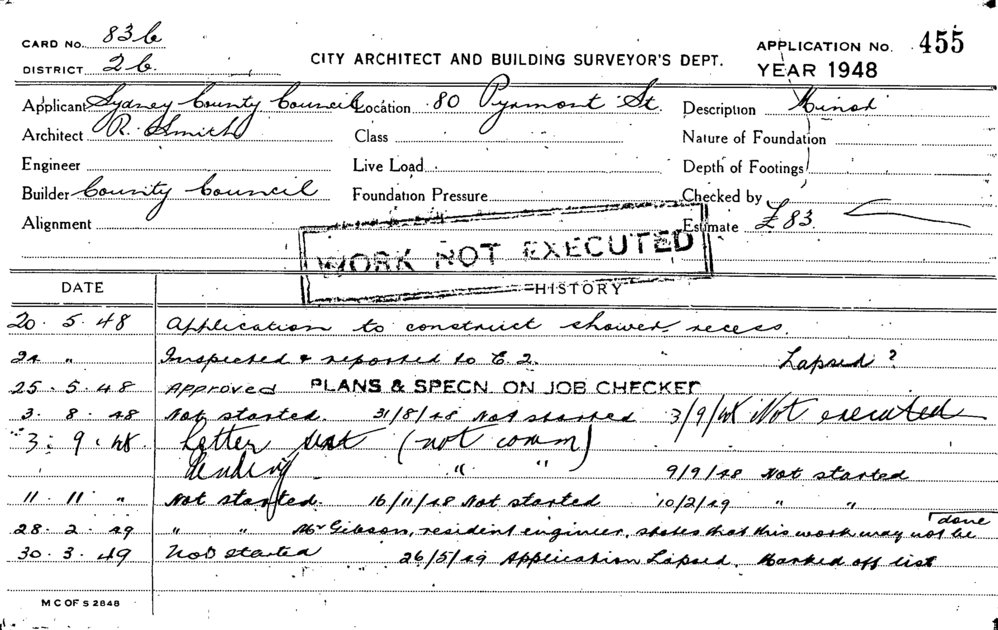 CARD No. 836
DISTRICT 26.
CITY ARCHITECT AND BUILDING SURVEYOR'S DEPT.
APPLICATION No. 455
YEAR 1948
Applicant Sydney County Council Location 80 Pyrmont St. Description Minor
Architect R. Smith Class Nature of Foundation
Engineer Live Load Depth of Footings
Builder County Council Foundation Pressure Checked by
Alignment Estimate £83.
WORK NOT EXECUTED
DATE HISTORY
20. 5. 48 Application to construct shower recess.
24 " Inspected & reported to E.2. " Lapsed ?
25. 5. 48 Approved PLANS & SPECN. ON JOB CHECKED
3. 8. 48 Not started. 31/8/48 Not started 3/9/48 Not executed
3. 9. 48. Letter sent (not comm)
Pending " " 9/9/48 Not started
11. 11. " Not started. 16/11/48 Not started 10/2/49 " "
28. 2. 49 " " Mr Gibson, resident engineer, states that this work may not be done
30. 3. 49 Not started 26/5/49 Application Lapsed. Marked off list
M C OF S 2848